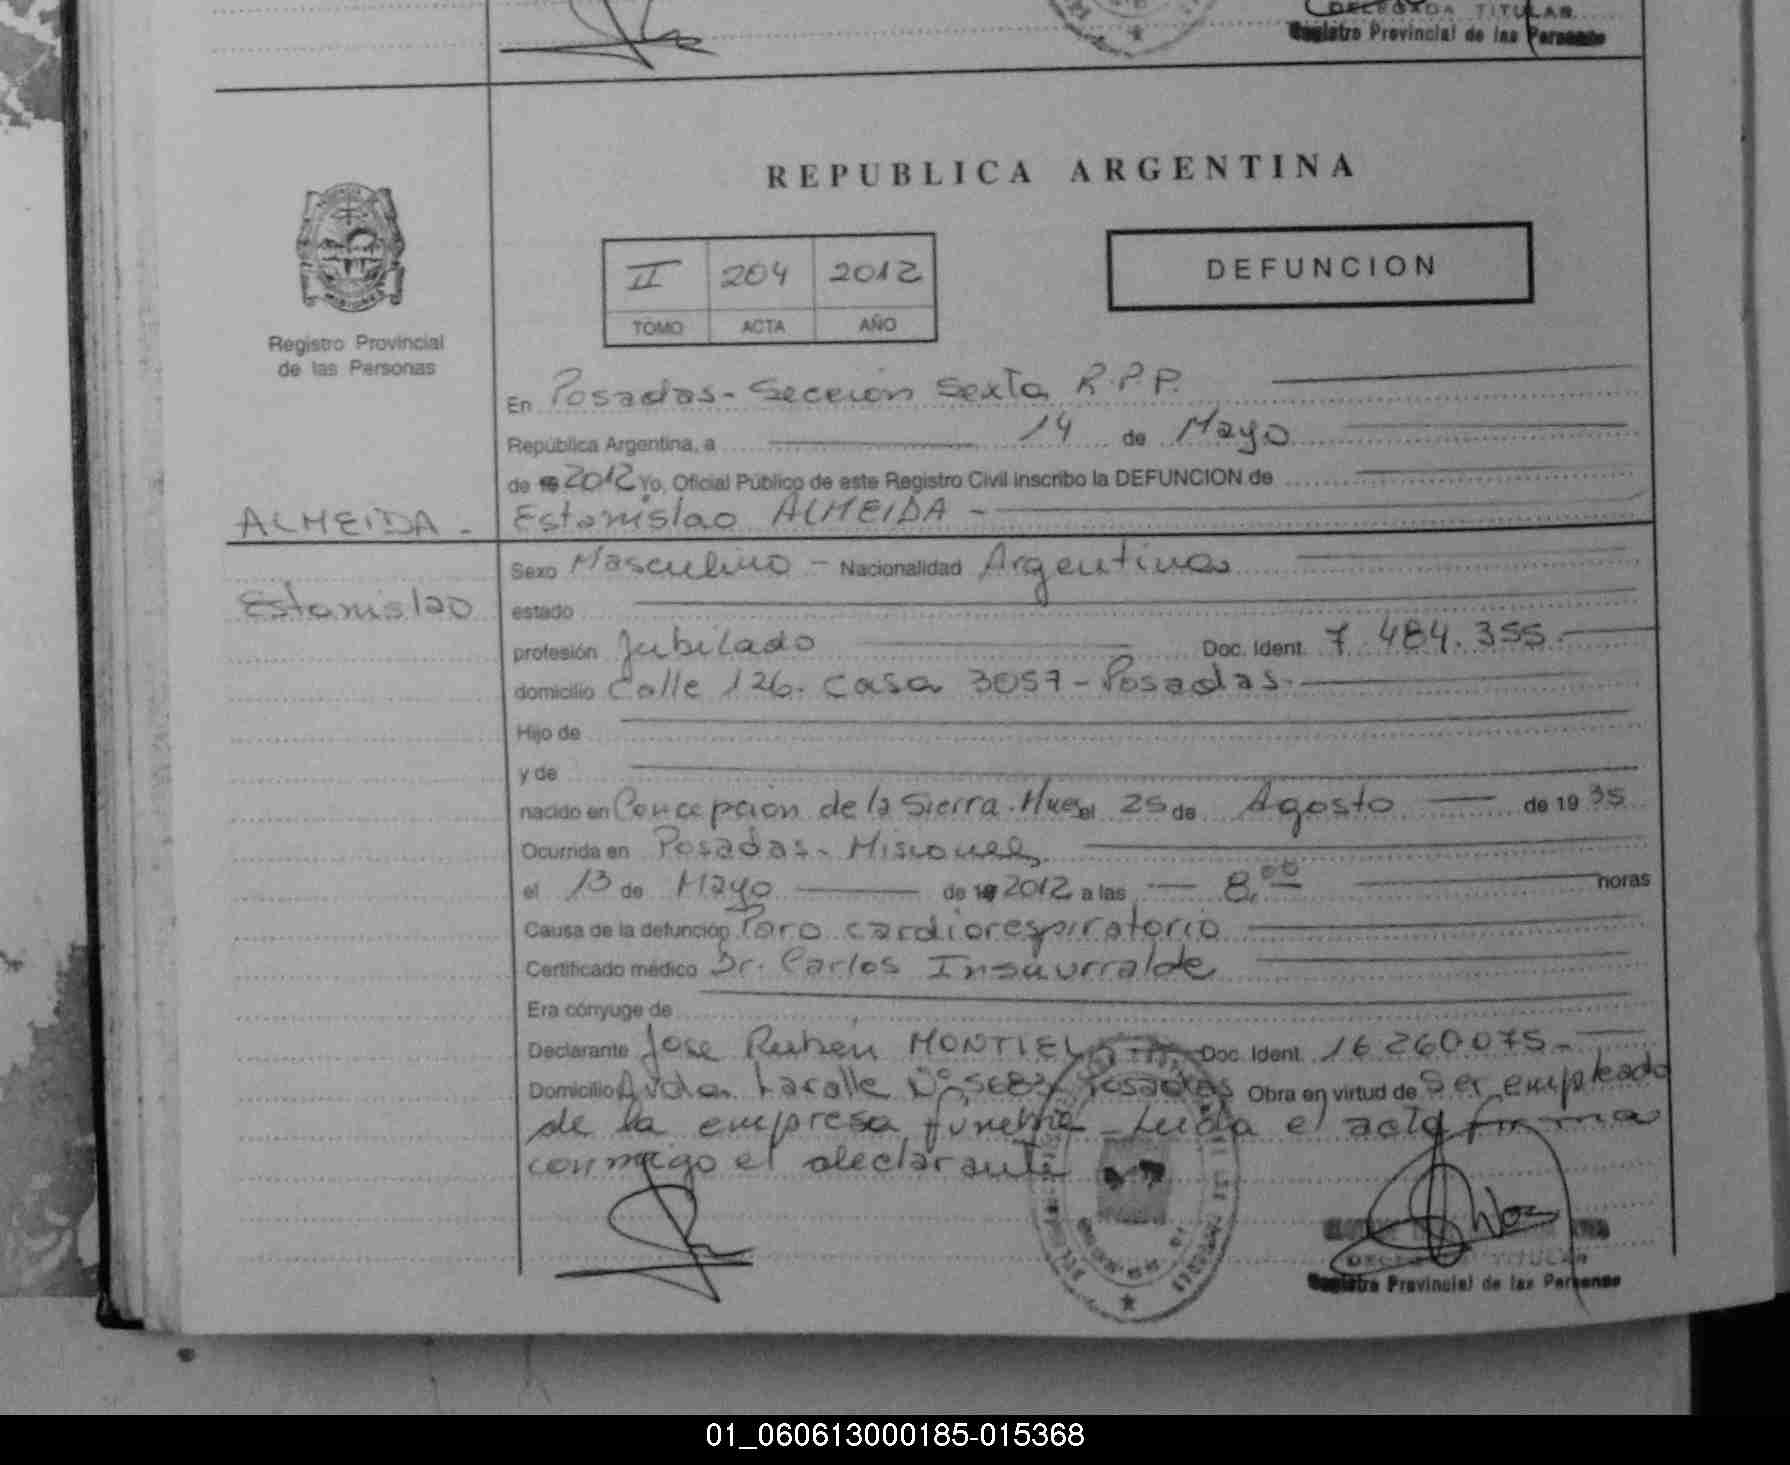 DELEGADA TITULAR
Registro Provincial de las Personas
REPUBLICA ARGENTINA
II 204 2012
TOMO ACTA AÑO
DEFUNCION
Registro Provincial
de las Personas
En Posadas - Sección Sexta R.P.P.
República Argentina, a 14 de Mayo
de 19 2012 Yo, Oficial Público de este Registro Civil inscribo la DEFUNCION de
ALMEIDA - Estanislao ALMEIDA -
Sexo Masculino - Nacionalidad Argentina
Estanislao
estado
profesión Jubilado Doc. Ident. 7.484.355.
domicilio Calle 126. casa 3057 - Posadas.
Hijo de
y de
nacido en Concepción de la Sierra. Mnes el 25 de Agosto de 19 35
Ocurrida en Posadas - Misiones
el 13 de Mayo de 19 2012 a las 8,00 horas
Causa de la defunción Paro cardiorespiratorio
Certificado médico Dr. Carlos Insaurralde
Era cónyuge de
Declarante Jose Ruben MONTIEL Doc. Ident. 16.260.075 -
Domicilio Avda. Lavalle Nº 5683 Posadas Obra en virtud de Ser empleado
de la empresa fúnebre - Leida el acta firma
conmigo el declarante
DELEGADA TITULAR
Registro Provincial de las Personas
01_060613000185-015368